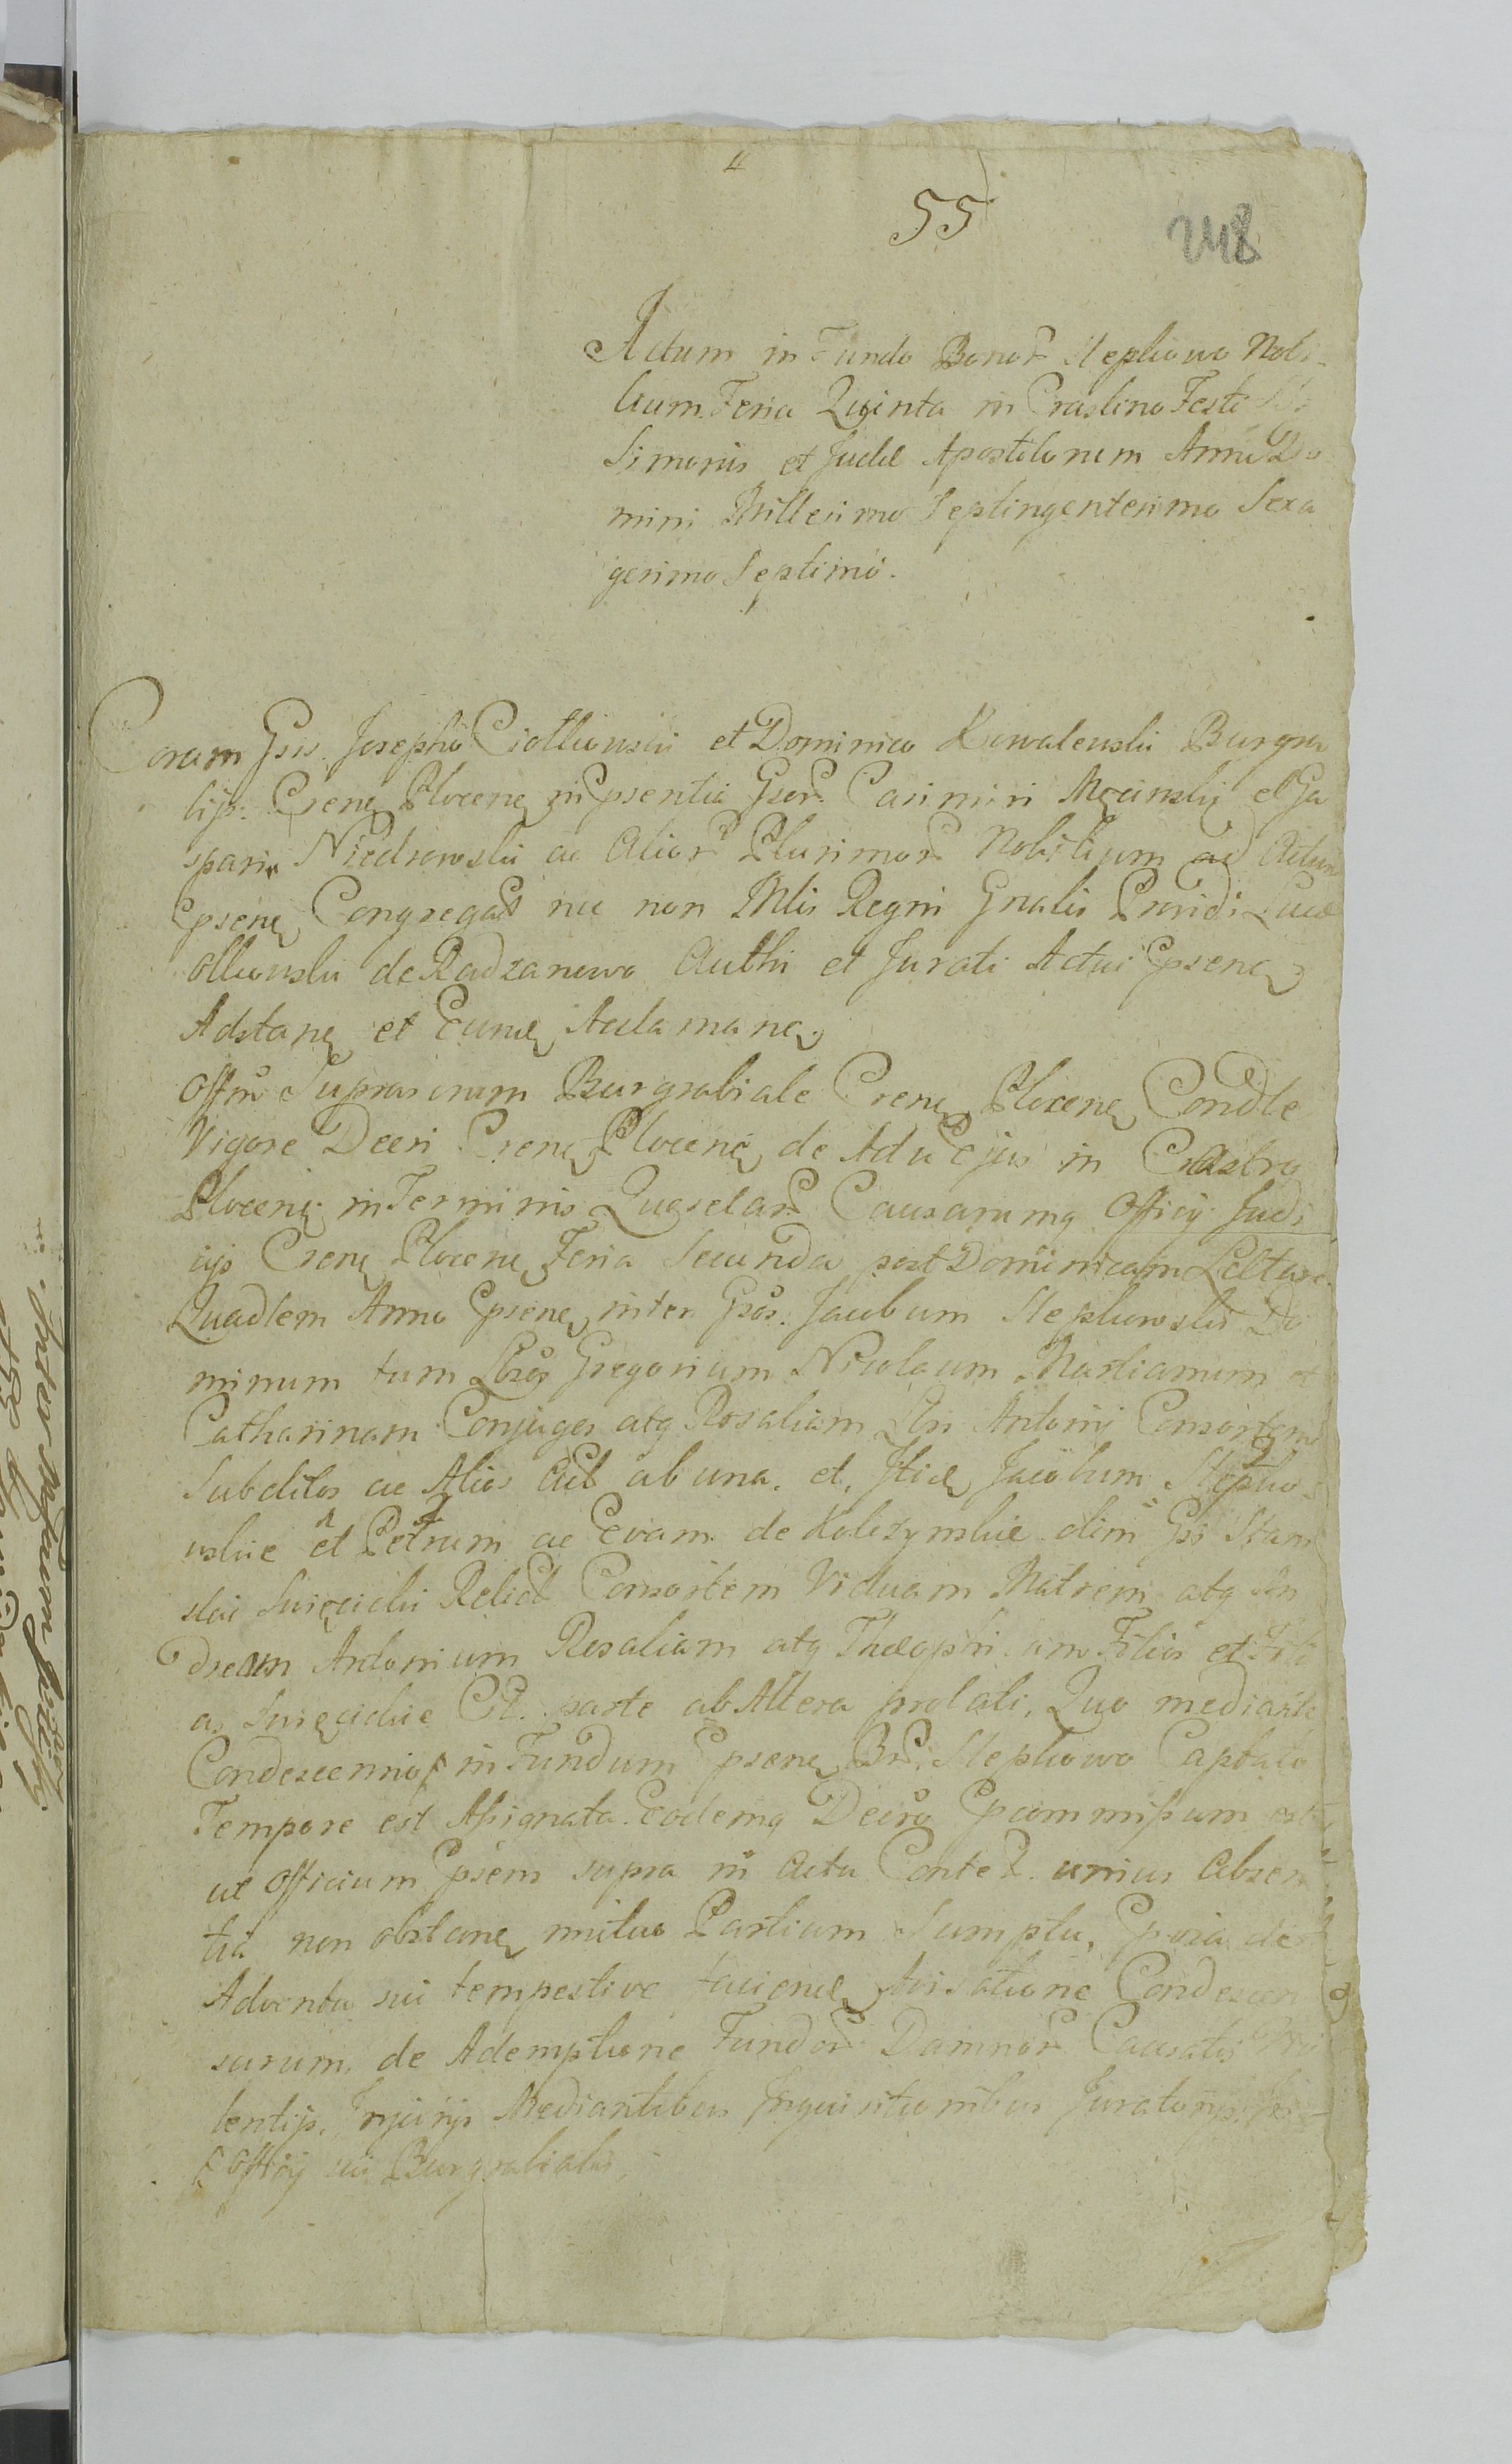 55
248
Actum in Fundo Bonor Slepkowo Nobi-
lium Feria Quinta in Crastino Festi
Simonis et Judæ Apostolorum Anno Do
mini Millesimo Septingentesimo Sexa
gesimo Septimo.
Coram Gsis Josepho Ciołkowski et Dominico Kowalewski Burgra
bijs Crenę Plocenę in Epsentia Gsor Casimiri Mocinski et Ga
sparis Niedrowski ac Alior Plurimor Nobilium ad Actum
Epsenę Congregat nec non Mlis Regni Gnalis Providi
ołkowski de Radzanowo Authi et Jurati Actui Epsenę
Adstanę et Eumę Aclamanę
Offm Suprascrum Burgrabiale Crenę Plocenę Condle
Vigore Decri Crenę Plocenę de Actu Ejus in Castro
Plocenę in Terminis Querelar Causarumq Officij Judi
cijs Crenę Plocenę Feria Secunda post Dominicam Lætare
Quadlem Anno Epsenę inter Gsos Jacobum Slepkowski Do
minum tum Lbsos Gregorium Nicolaum Martianum et
Catharinam Conjuges atq Rosaliam Lbsi Antonij Consortem
Subditos ac Alios Act ab una. et, Jacobum Slepko
wskie et Petrum ac Evam de Kolczynskie olim Gsi Stani
slai Swięcicki Relict Consortem Viduam Matrem atq An
dream Antonium Rosaliam atq Theophilam Filios et Fili
as Swięcickie Cit. parte ab Altera prolati, Quo mediante
Condescensio in Fundum Epsenę Br. Slepkowo Captato
Tempore est Assignata. Eodemq Decro Epcommissum est
ut Officium Epsens supra in Actu Content. unius Absen
tia non obstanę mutuo Partium Sumptu, Epvia de
Adventu sui tempestive faciendę Avisatione Condescen
surum, de Ademptione Fundor Damnor Causatis
lentijs, Injurijs Mediantibus Inquisitionibus Juratorijs
Officij sui Burgrabialis,